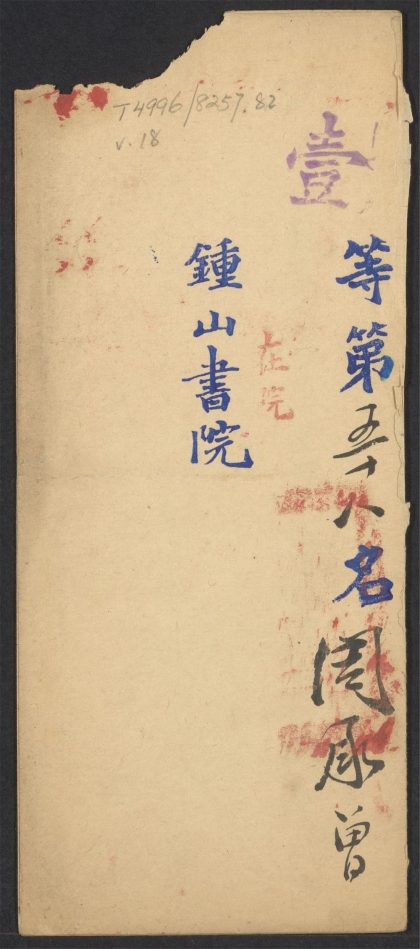 T4996/8257.82
v. 18
壹等第五十八名周承曾
在院
鍾山書院